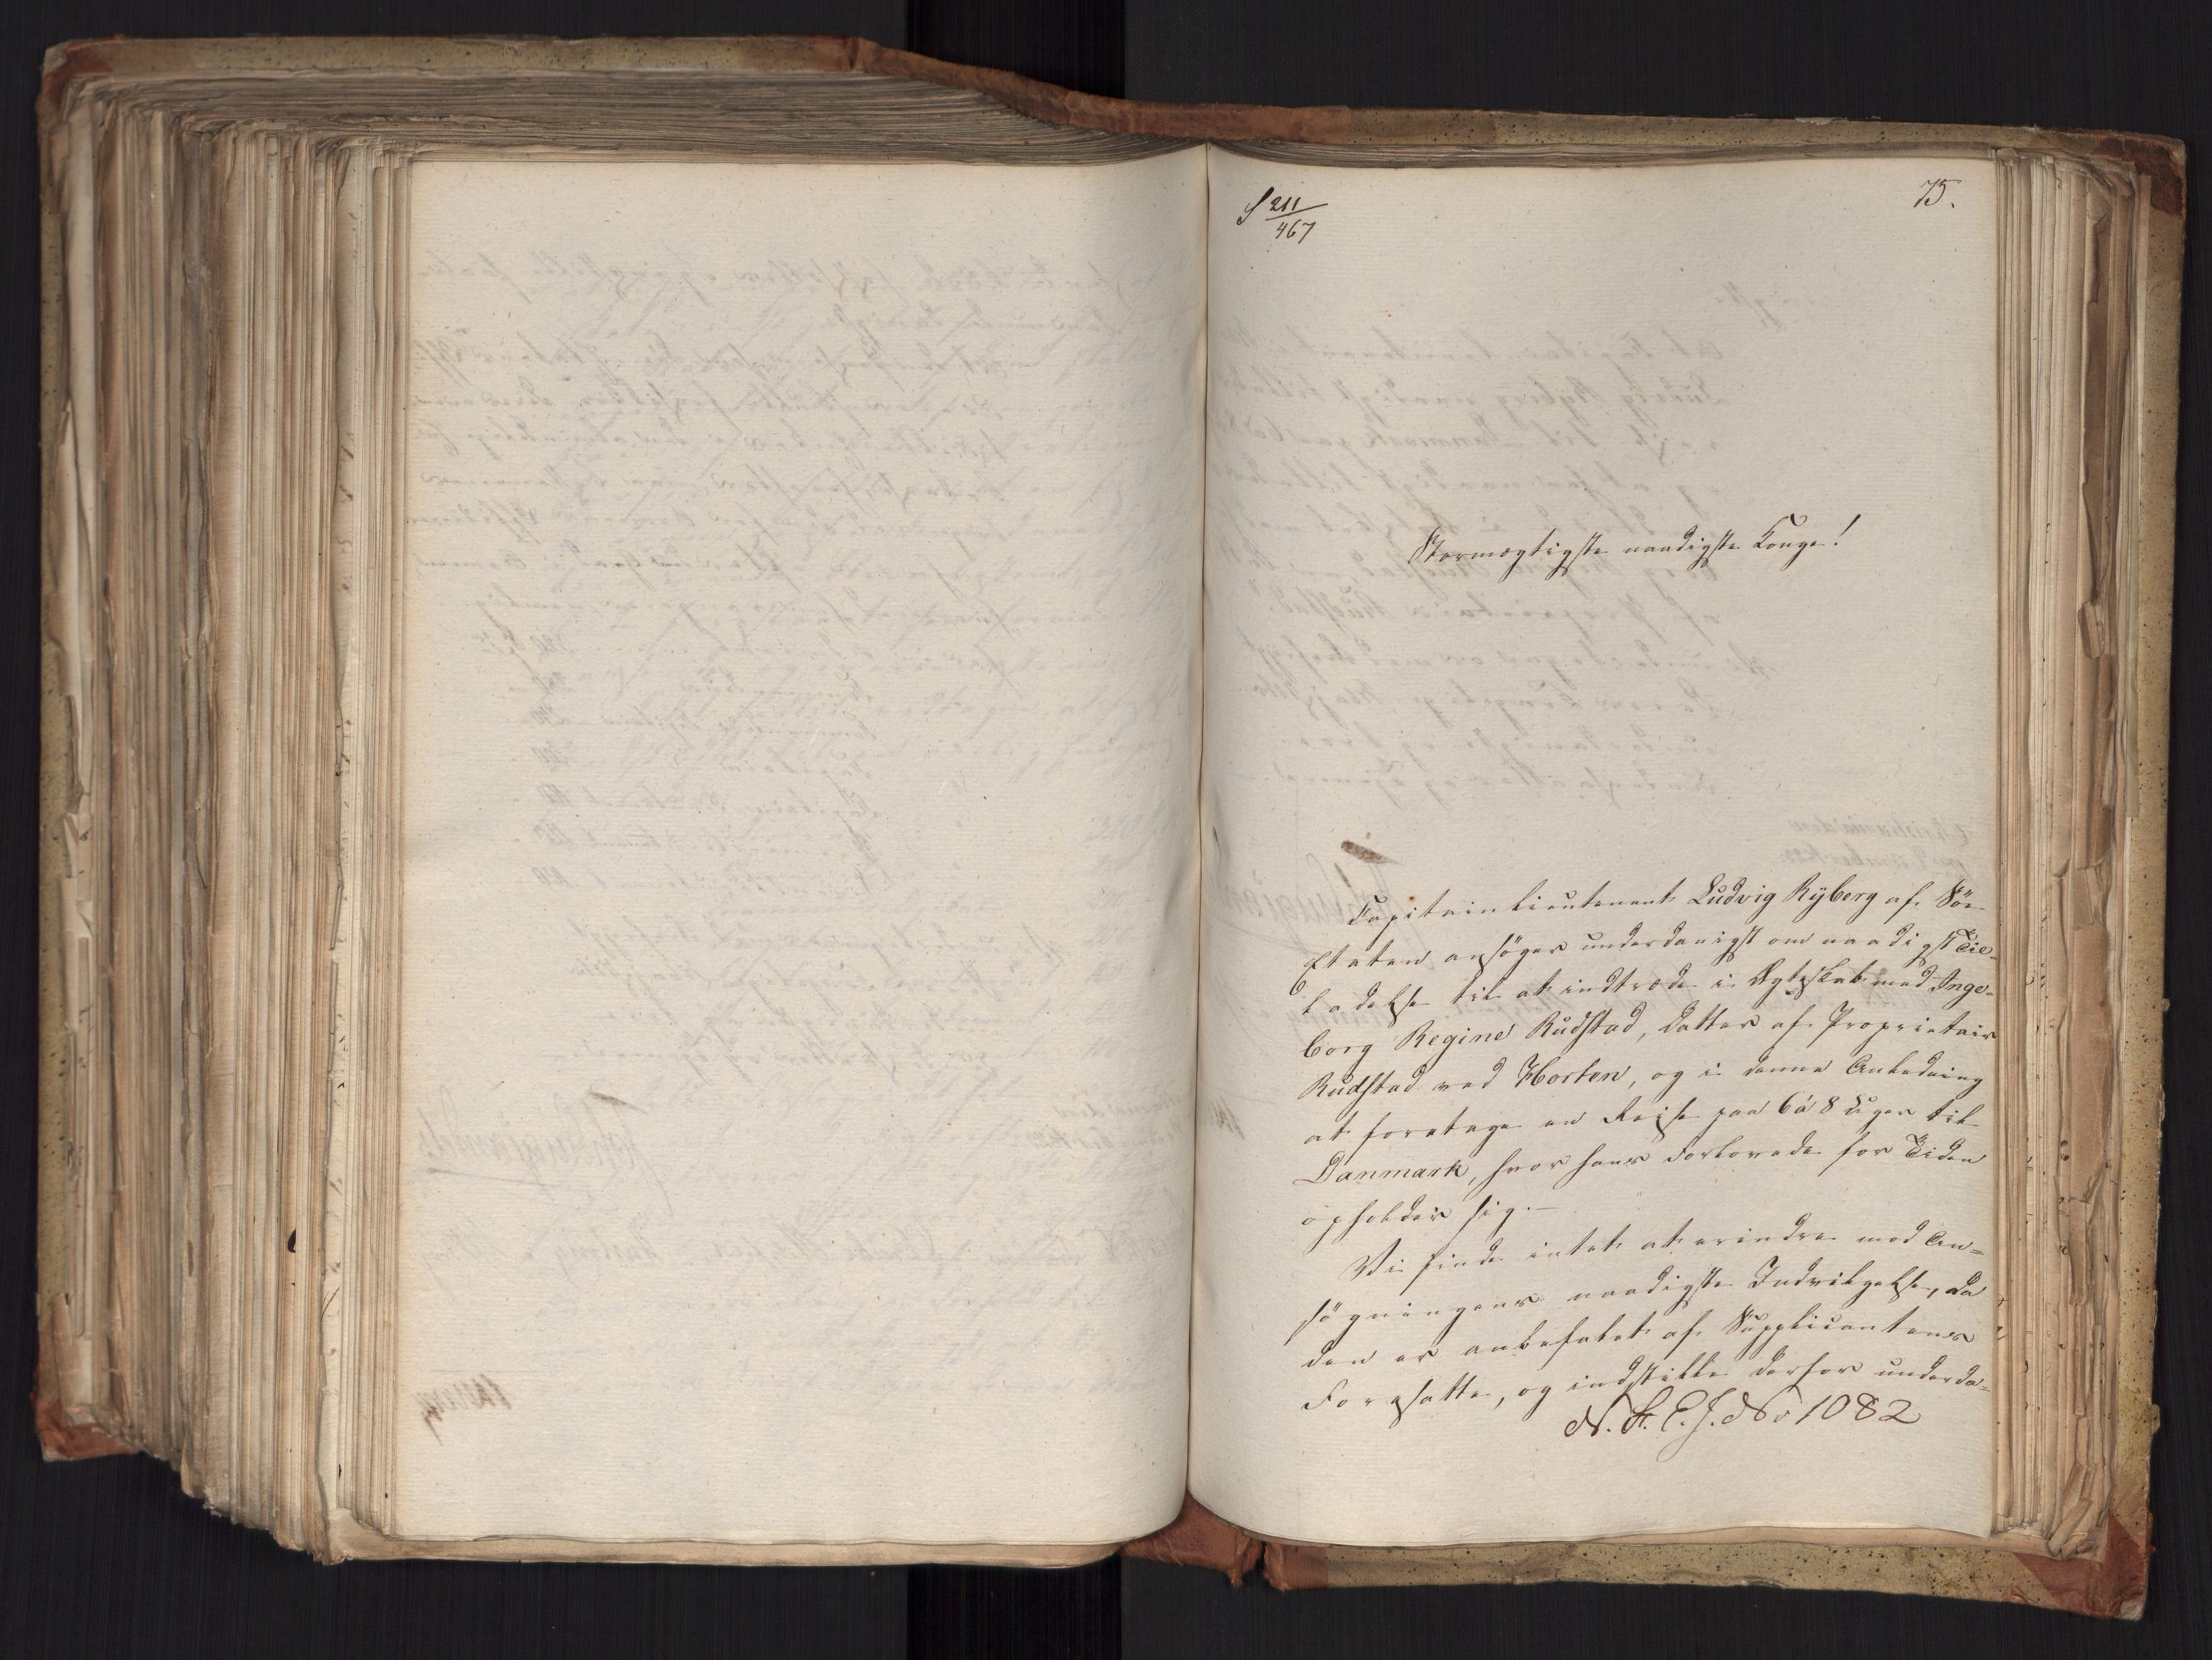 S 211/467
75.
Stormægtigste naadigste Konge!
Capitainlieutenant Ludvig Ryberg af Söe
Etaten ansöger underdanigst om naadigst Til-
ladelse til at indtræde i Ægteskab med Inge-
borg Regine Rudstad, Datter af Proprietair
Rudstad ved Horten, og i denne Anledning
at foretage en Reise paa 6 á 8 Uger til
Danmark, hvor hans Forlovede for Tiden
opholder sig.—
Vi finde intet at erindre mod An-
sögningens naadigste Indvilgelse, da
den er anbefalet af Supplicantens
Foresatte, og indstille derfor underda-
N. St. C. J. No 1082